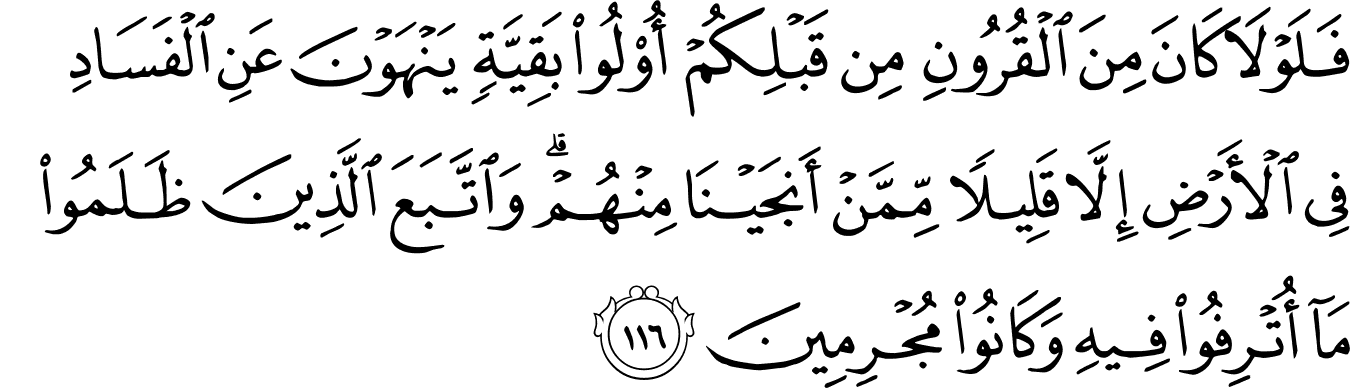 فَلَوْلَا كَانَ مِنَ ٱلْقُرُونِ مِن قَبْلِكُمْ أُو۟لُوا۟ بَقِيَّةٍ يَنْهَوْنَ عَنِ ٱلْفَسَادِ
فِى ٱلْأَرْضِ إِلَّا قَلِيلًا مِّمَّنْ أَنجَيْنَا مِنْهُمْ ۗ وَٱتَّبَعَ ٱلَّذِينَ ظَلَمُوا۟
مَآ أُتْرِفُوا۟ فِيهِ وَكَانُوا۟ مُجْرِمِينَ ١١٦